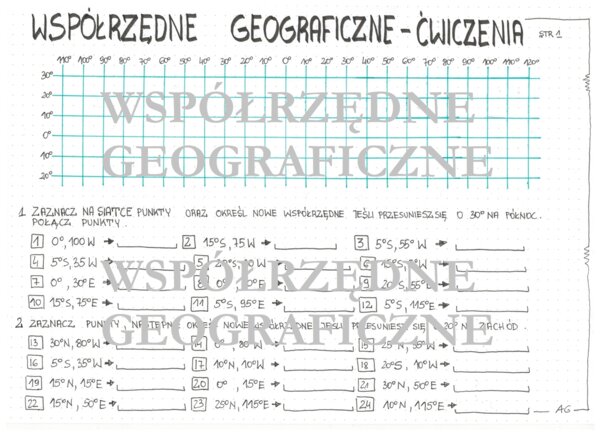 WSPÓŁRZĘDNE GEOGRAFICZNE - ĆWICZENIA STR 1
110° 100° 90° 80° 70° 60° 50° 40° 30° 20° 10° 0° 10° 20° 30° 40° 50° 60° 70° 80° 90° 100° 110° 120°
30°
20°
10°
0°
10°
20°
WSPÓŁRZĘDNE
GEOGRAFICZNE
1. ZAZNACZ NA SIATCE PUNKTY ORAZ OKREŚL NOWE WSPÓŁRZĘDNE JEŚLI PRZESUNIESZ SIĘ O 30° NA PÓŁNOC.
POŁĄCZ PUNKTY.
1 0°, 100°W → 2 15°S, 75°W → 3 5°S, 55°W →
4 5°S, 35°W → 5 6
7 0°, 30°E → 8 9 20°S, 55°E →
10 15°S, 75°E → 11 5°S, 95°E → 12 5°S, 115°E →
WSPÓŁRZĘDNE
GEOGRAFICZNE
2. ZAZNACZ PUNKTY, NASTĘPNIE OKREŚL NOWE WSPÓŁRZĘDNE JEŚLI PRZESUNIESZ SIĘ O 20° NA ZACHÓD.
13 30°N, 80°W → 14 0°, 80°W → 15 25°N, 35°W →
16 5°S, 35°W → 17 10°N, 10°W → 18 20°S, 10°W →
19 15°N, 15°E → 20 0°, 15°E → 21 30°N, 50°E →
22 15°N, 50°E → 23 25°N, 115°E → 24 10°N, 115°E →
AG